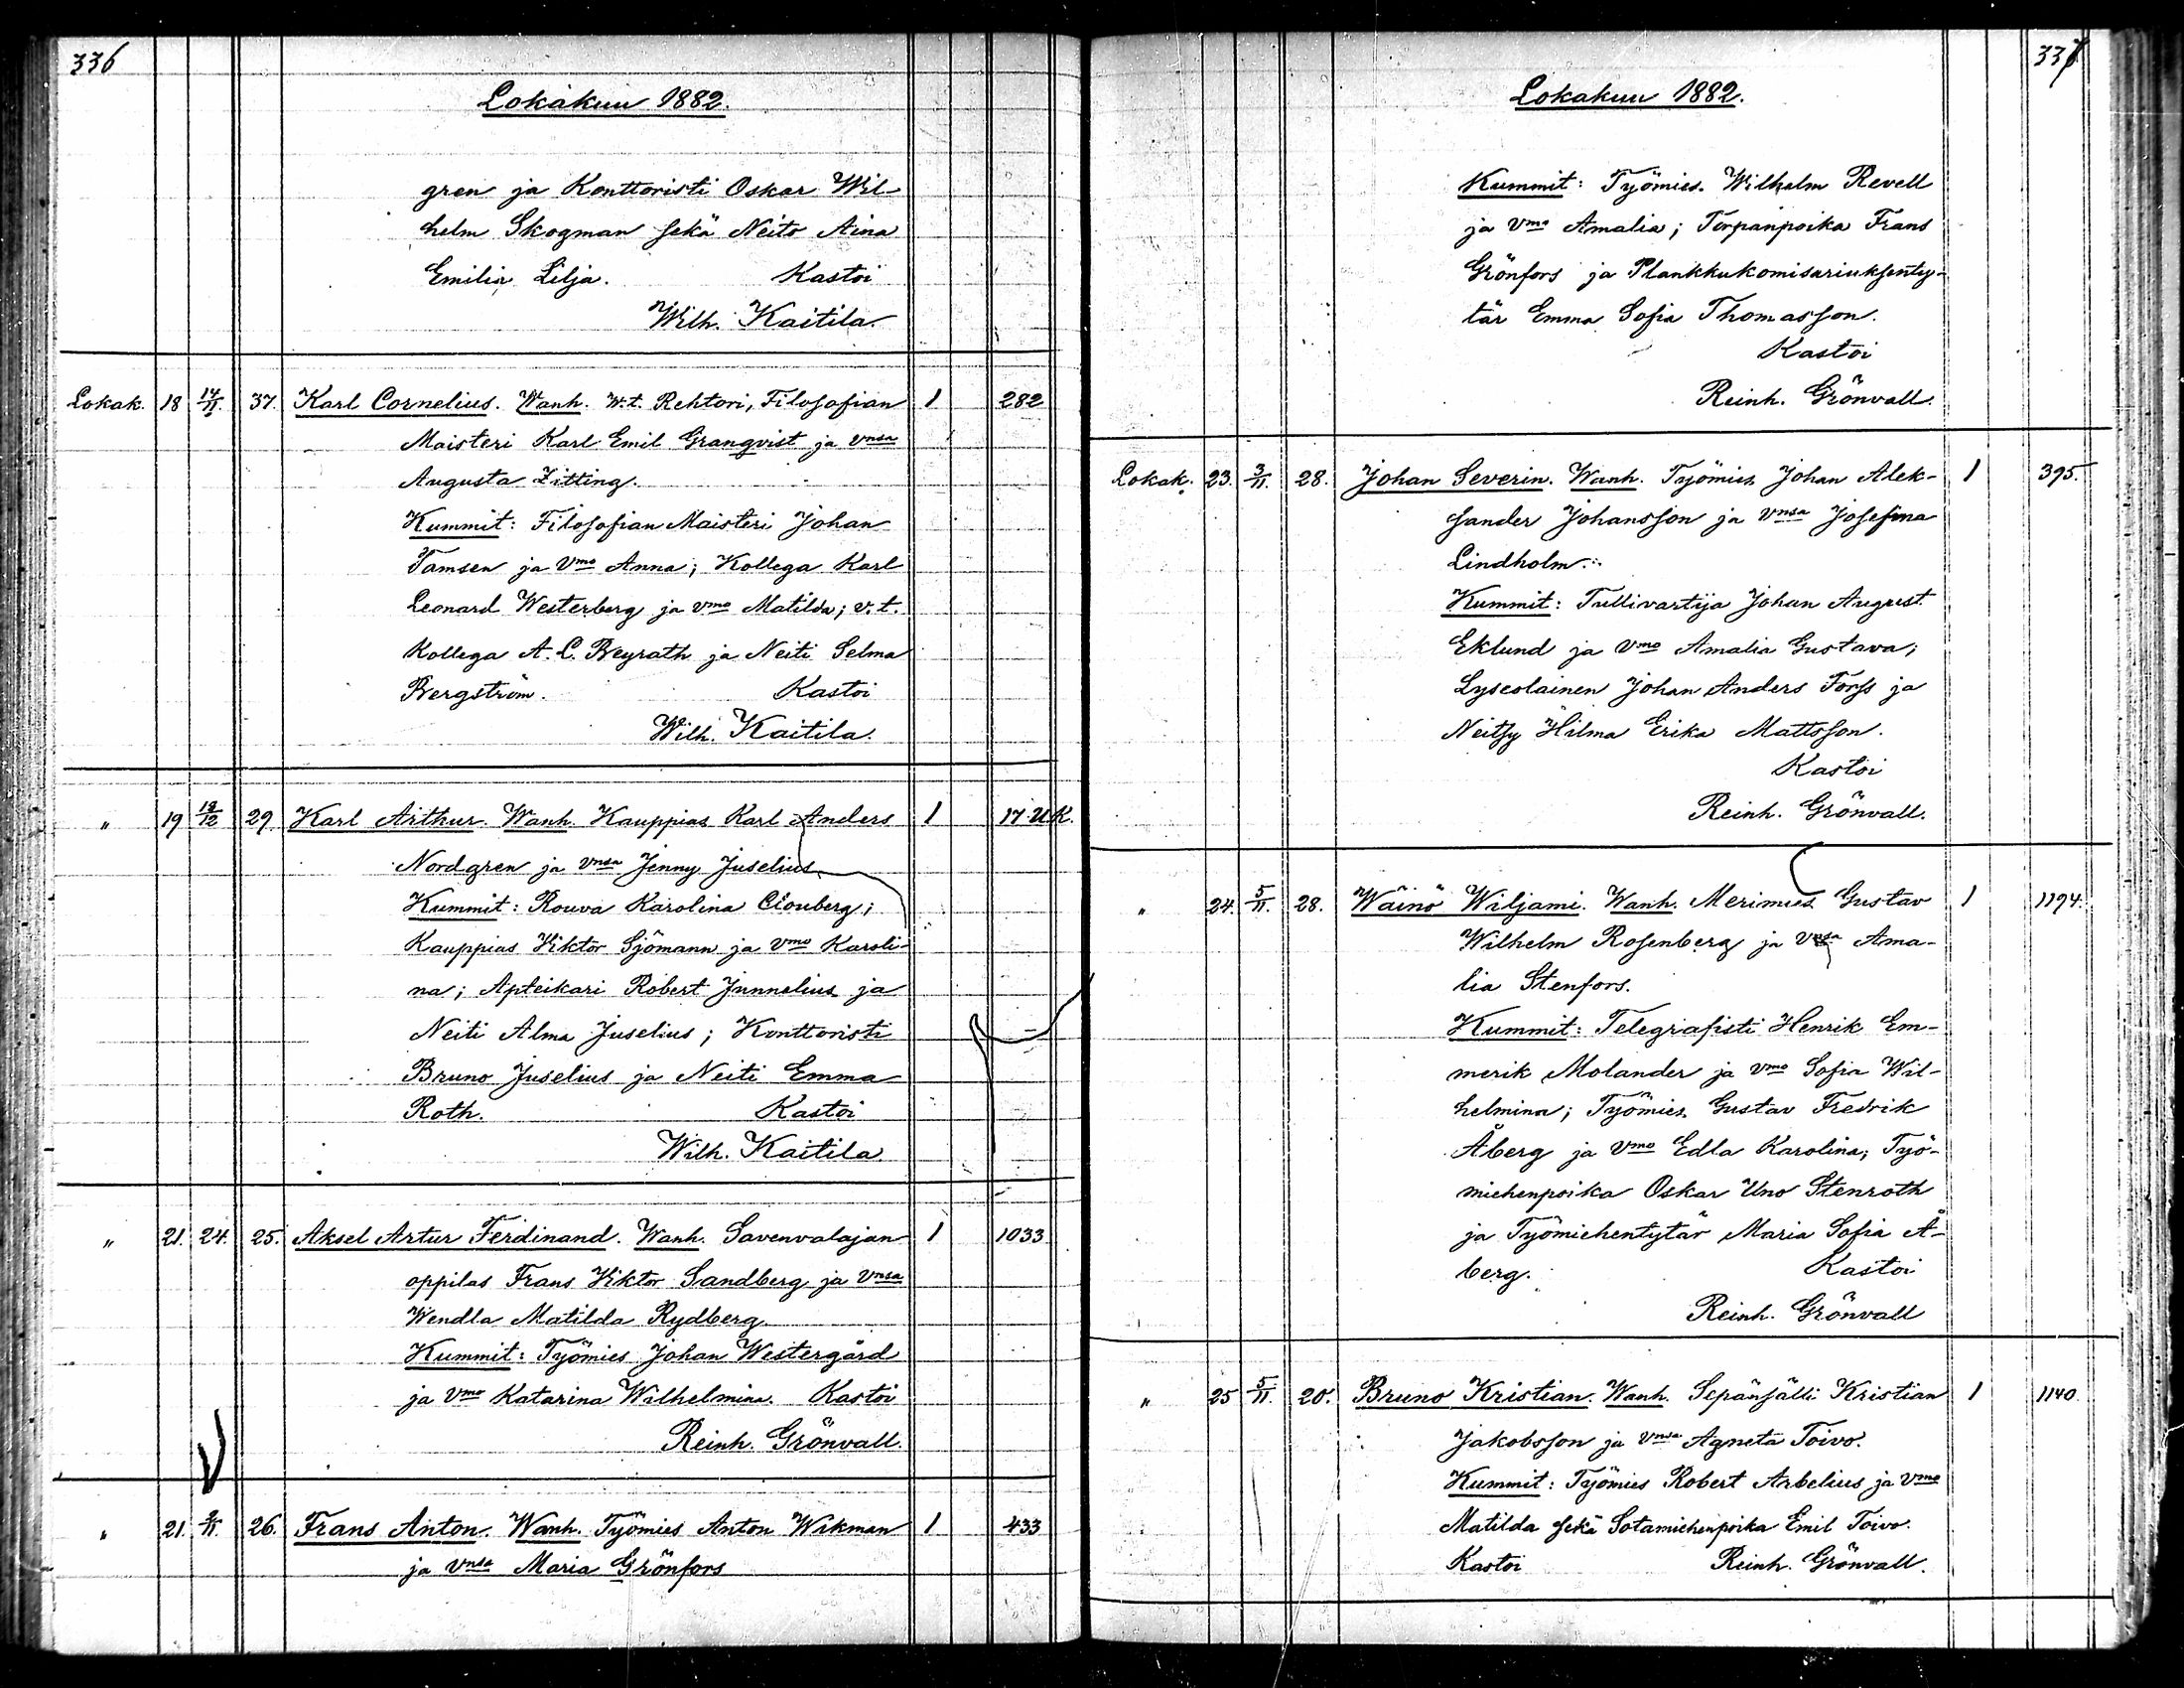 336
Lokakuu 1882.
gren ja Konttoristi Oskar Wil-
helm Skogman sekä Neito Aina
Emilia Lilja. Kastoi
Wilh. Kaitila.
Lokak. 18 14/11. 37. Karl Cornelius. Wanh. W.t. Rehtori, Filosofian 1 282
Maisteri Karl Emil Granqvist ja vnsa
Augusta Zitting.
Kummit: Filosofian Maisteri Johan
Tamsen ja Vmo Anna; Kollega Karl
Leonard Westerberg ja vmo Matilda; v.t.
Kollega A. L. Beyrath ja Neiti Selma
Bergström. Kastoi
Wilh. Kaitila.
" 19 18/12 29 Karl Arthur. Wanh. Kauppias Karl Anders 1 17 UK.
Nordgren ja vnsa Jenny Juselius
Kummit: Rouva Karolina Clouberg;
Kauppias Viktor Sjömann ja vmo Karoli-
na; Apteikari Robert Junnelius ja
Neiti Alma Juselius; Konttoristi
Bruno Juselius ja Neiti Emma
Roth. Kastoi
Wilh. Kaitila.
" 21. 24. 25. Aksel Artur Ferdinand. Wanh. Savenvalajan 1 1033
oppilas Frans Viktor Sandberg ja vnsa
Wendla Matilda Rydberg.
Kummit: Työmies Johan Westergård
ja vmo Katarina Wilhelmina. Kastoi
Reinh. Grönvall.
" 21. 26. Frans Anton. Wanh. Työmies Anton Wikman 1 433
ja vnsa Maria Grönfors
337
Lokakuu 1882.
Kummit: Työmies Wilhelm Revell
ja vmo Amalia; Torpanpoika Frans
Grönfors ja Plankkukomisariuksenty-
tär Emma Sofia Thomasson.
Kastoi
Reinh. Grönvall.
Lokak. 23. 3/11. 28. Johan Severin. Wanh. Työmies Johan Alek- 1 395.
sander Johansson ja vnsa Josefina
Lindholm.
Kummit: Tullivartija Johan August
Eklund ja vmo Amalia Gustava;
Lyseolainen Johan Anders Forss ja
Neitsy Hilma Erika Mattsson.
Kastoi
Reinh. Grönvall.
" 24. 5/11. 28. Wäinö Wiljami. Wanh. Merimies Gustav 1 1194.
Wilhelm Rosenberg ja vnsa Ama-
lia Stenfors.
Kummit: Telegrafisti Henrik Em-
merik Molander ja vmo Sofia Wil-
helmina; Työmies Gustav Fredrik
Åberg ja vmo Edla Karolina; Työ-
miehenpoika Oskar Uno Stenroth
ja Työmiehentytär Maria Sofia Å-
berg. Kastoi
Reinh. Grönvall
" 25 5/11. 20. Bruno Kristian. Wanh. Sepänsälli Kristian 1 1140.
Jakobsson ja vnsa Agneta Toivo.
Kummit: Työmies Robert Arbelius ja vmo
Matilda sekä Sotamiehenpoika Emil Toivo.
Kastoi Reinh. Grönvall.